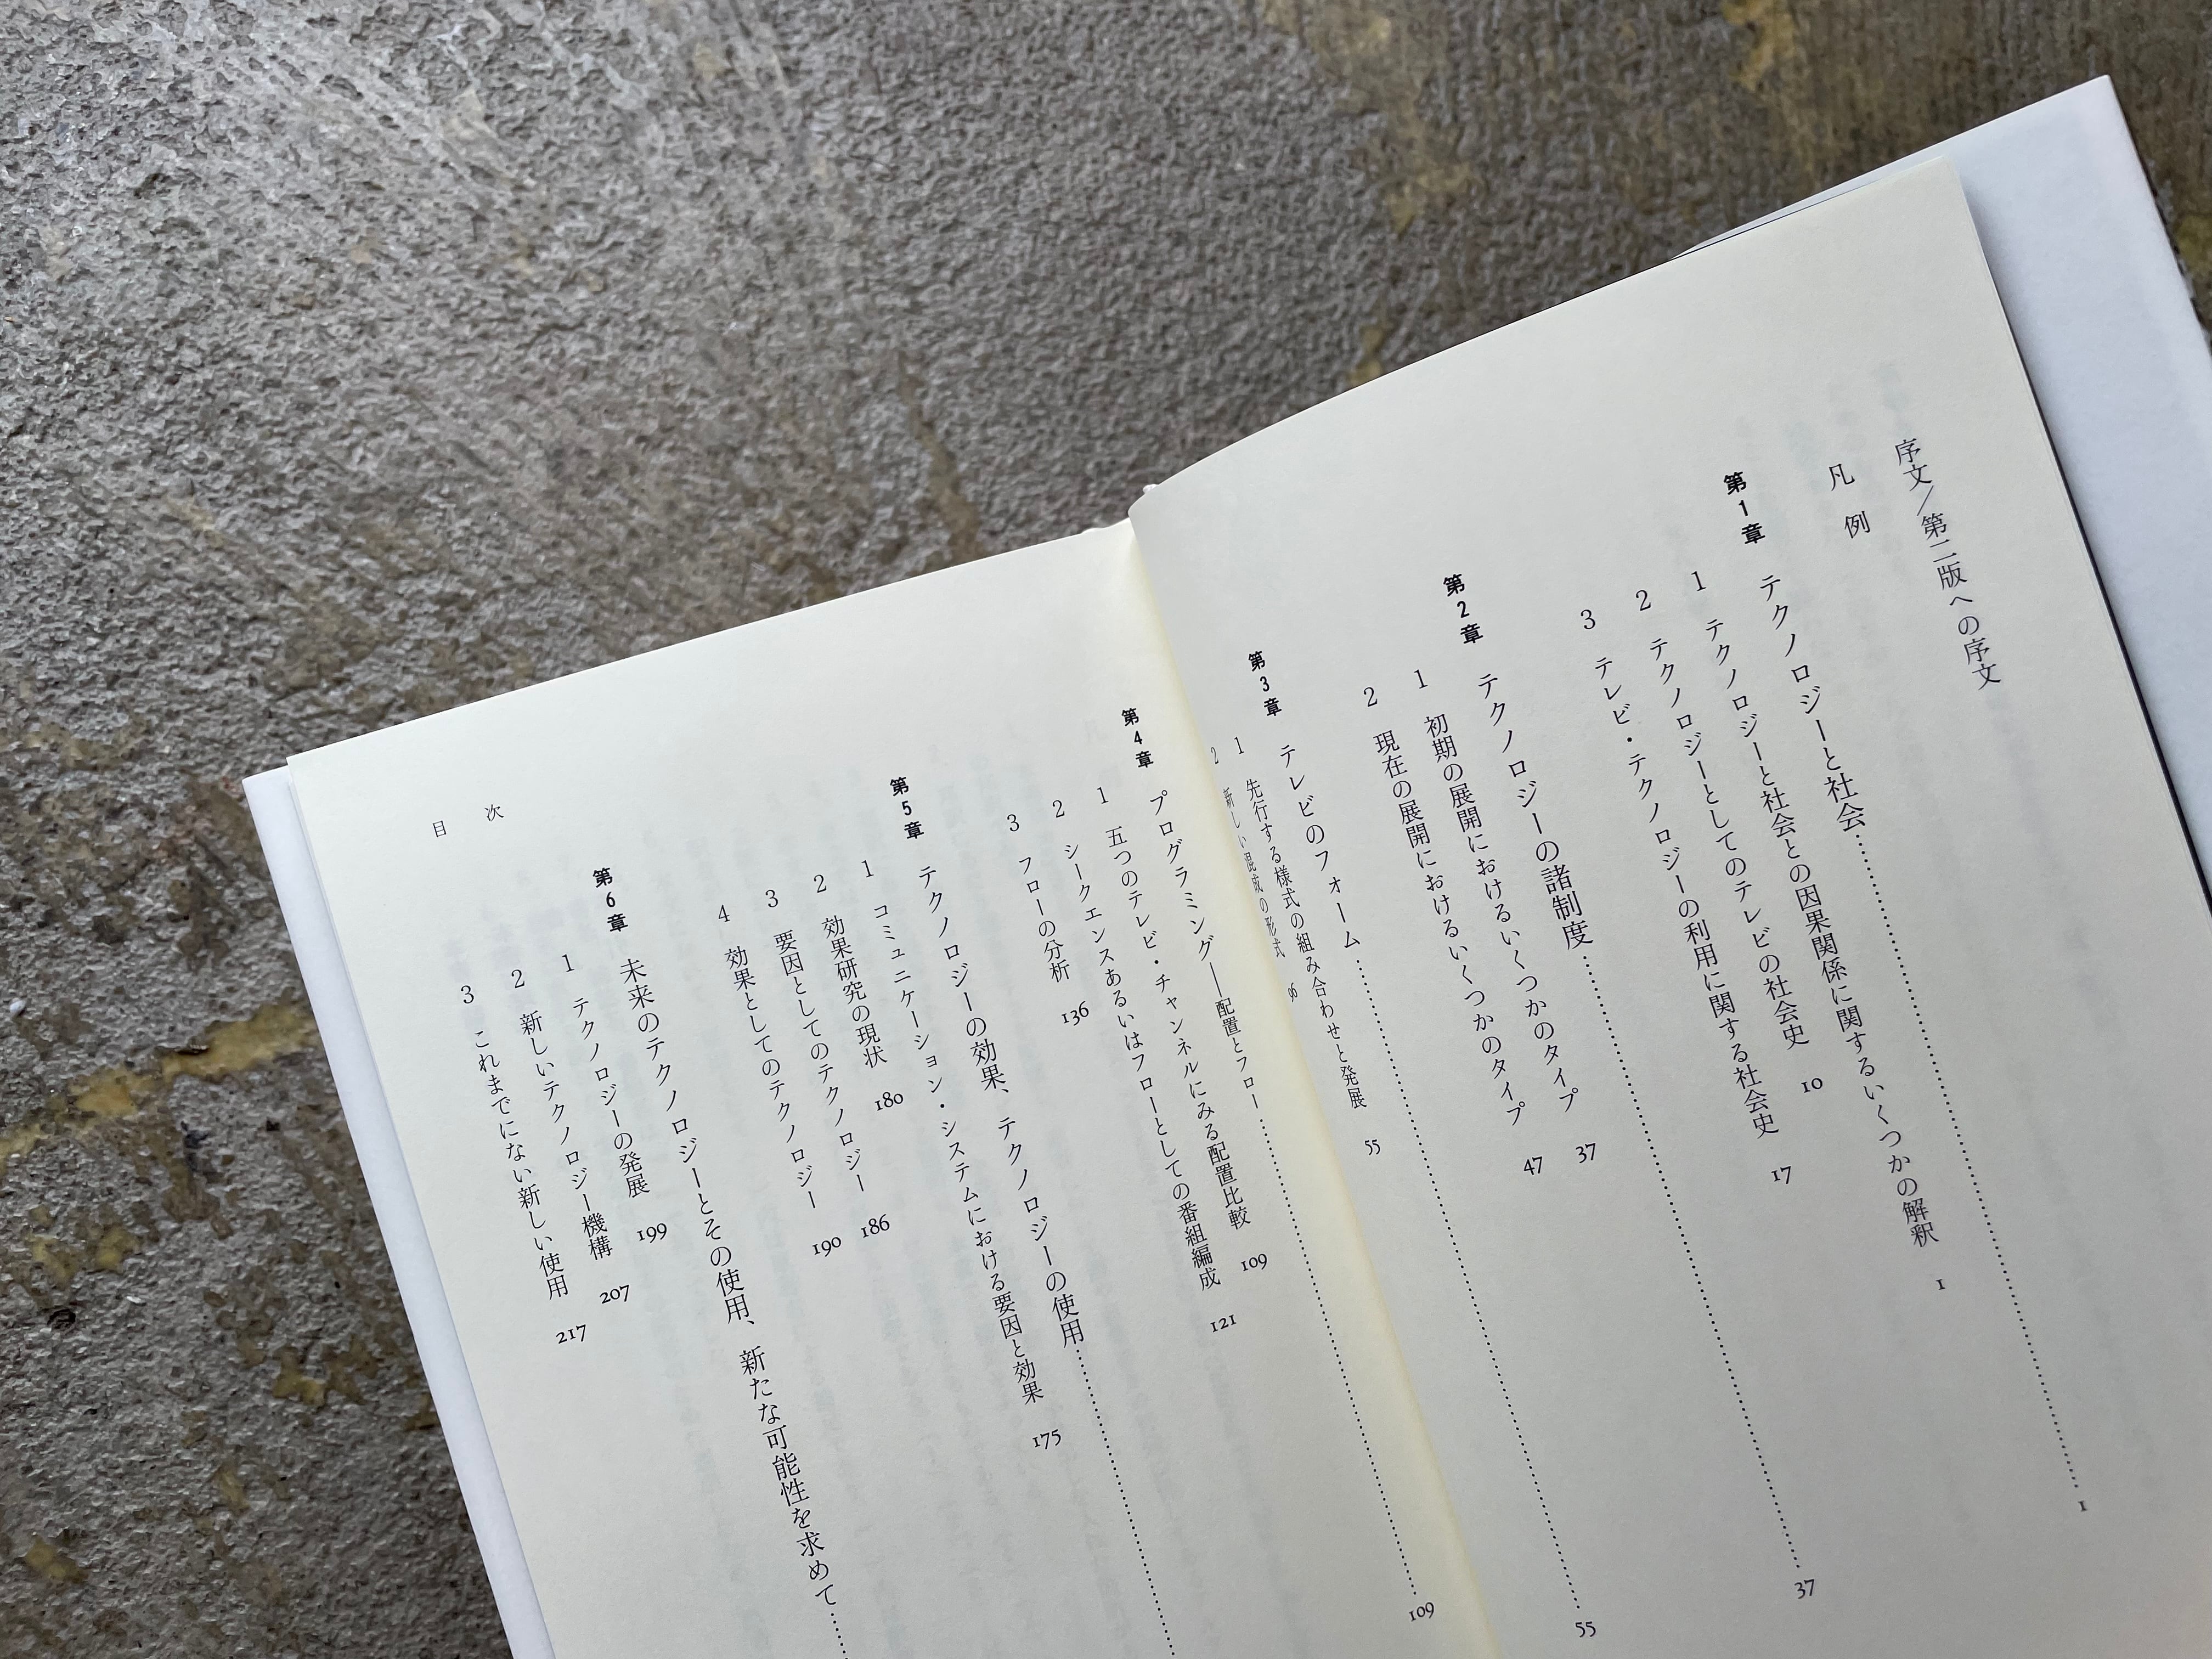 序文／第二版への序文
凡例
第1章 テクノロジーと社会……………1
1 テクノロジーと社会との因果関係に関するいくつかの解釈 1
2 テクノロジーとしてのテレビの社会史 10
3 テレビ・テクノロジーの利用に関する社会史 17
第2章 テクノロジーの諸制度……………37
1 初期の展開におけるいくつかのタイプ 37
2 現在の展開におけるいくつかのタイプ 47
第3章 テレビのフォーム……………55
1 先行する様式の組み合わせと発展 55
2 新しい混成の形式 96
第4章 プログラミング―配置とフロー……………109
1 五つのテレビ・チャンネルにみる配置比較 109
2 シークエンスあるいはフローとしての番組編成 121
3 フローの分析 136
第5章 テクノロジーの効果、テクノロジーの使用……………
1 コミュニケーション・システムにおける要因と効果 175
2 効果研究の現状 180
3 要因としてのテクノロジー 186
4 効果としてのテクノロジー 190
第6章 未来のテクノロジーとその使用、新たな可能性を求めて……
1 テクノロジーの発展 199
2 新しいテクノロジー機構 207
3 これまでにない新しい使用 217
目次